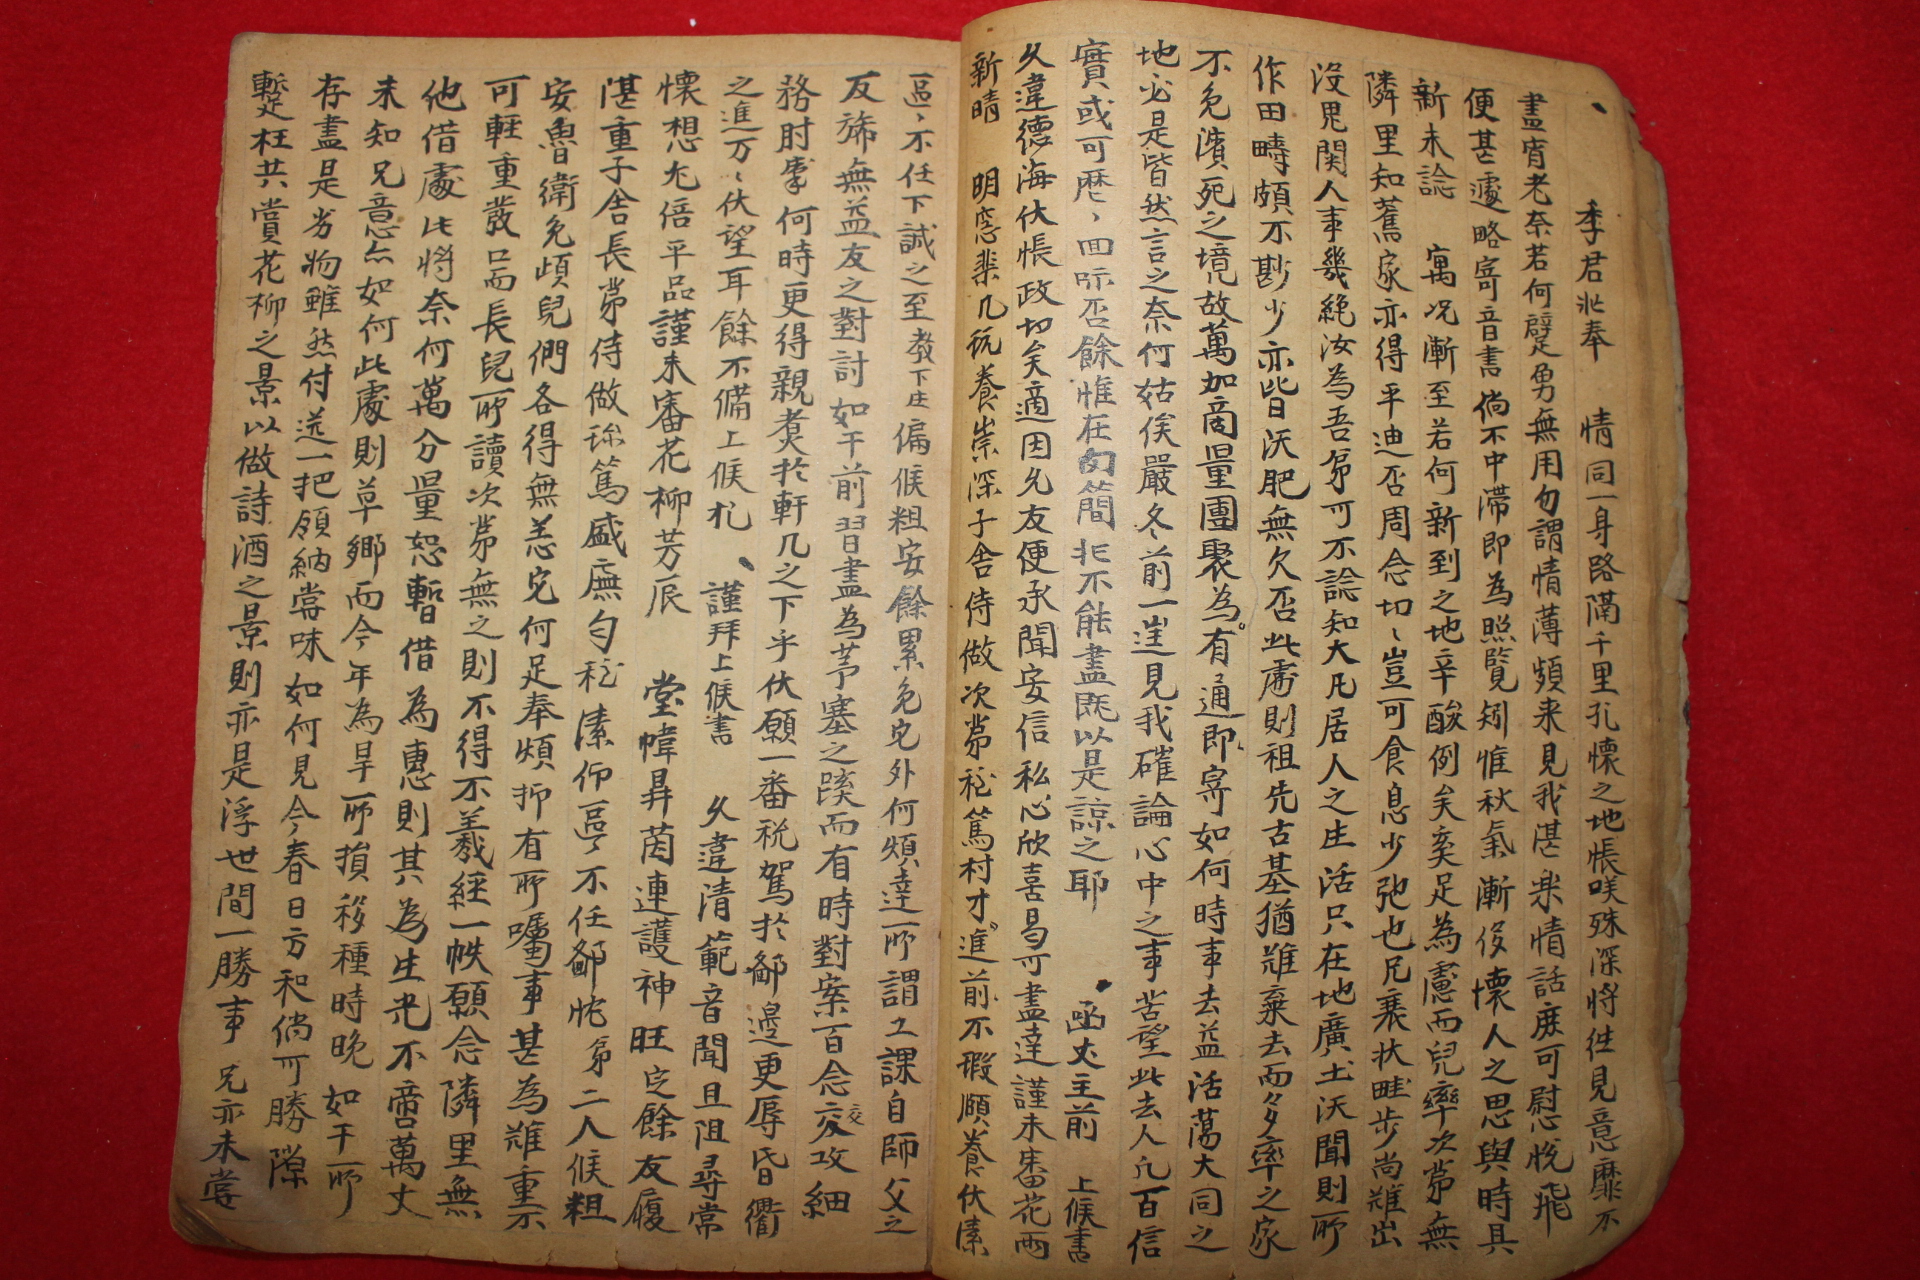 季君𠩄奉 情同一身路隔千里孔懷之地悵咲殊深將徃見意靡不
盡宵老奈若何躄勇無用勿謂情薄頻来見我湛楽情話庶可慰悅飛
便甚遽略寄音書倘不中滯即為照覽矧惟秋氣漸侈懷人之思與時具
新未諗 寓况漸至若何新到之地辛酸例矣奚足為慮而兒率次第無
隣里知舊家亦得平迪否周念切〻豈可食息少弛也兄衰状畦步尚難出
沒畏関人事幾絶汝為吾第可不諗知大凡居人之生活只在地廣土沃聞則所
作田疇頗不尠少亦皆沃肥無欠否此處則祖先古基猶難棄去而多率之家
不免濱死之境故萬加商量團聚為有通即寄如何時事去益活蕩大同之
地必是皆然言之奈何姑俟嚴冬前一逞見我確論心中之事苦望此去人凢百信
實或可厯〻回示否餘惟在勿簡非不能盡既以是諒之耶 函丈主前 上候書
久違德海伏悵政切矣適因允友便承聞安信私心欣喜曷可盡達謹未審花雨
新晴 明窓棐几玩養崇深子舍侍做次第稳篤村才進前不瑕願養伏溸
區〻不任下誠之至教下生偏候粗安餘累免宅外何煩達所謂工課自師父之
友旆無益友之對討如干前習盡為茅塞之蹊而有時對案百念交攻細
務肘掌何時更得親炙扵軒几之下乎伏願一番税駕扵鄙邊更辱昏衢
之進万〻伏望耳餘不備上候札 謹拜上候書 久違清範音聞且阻尋常
懷想尢倍平品謹未審花柳芳辰 堂幃昇茵連護神旺定餘友履
湛重子舍長第侍做珎篤盛廡匀稳溸仰區〻不任鄙恠第二人候粗
安魯衛免頉兒們各得無恙宅何足奉煩抑有所囑事甚為難重而
可輕重發口而長兒所讀次第無之則不得不羲經一帙願念隣里無
他借處此將奈何萬分量恕暫借為惠則其為生光不啻萬丈
未知兄意亦如何此處則草鄉而今年為旱所損移種時晩如干所
存盡是劣物雖然付送一把領納嘗味如何見今春日方和倘可勝際
蹔枉共賞花柳之景以做詩酒之景則亦是浮世間一勝事 兄亦未嘗